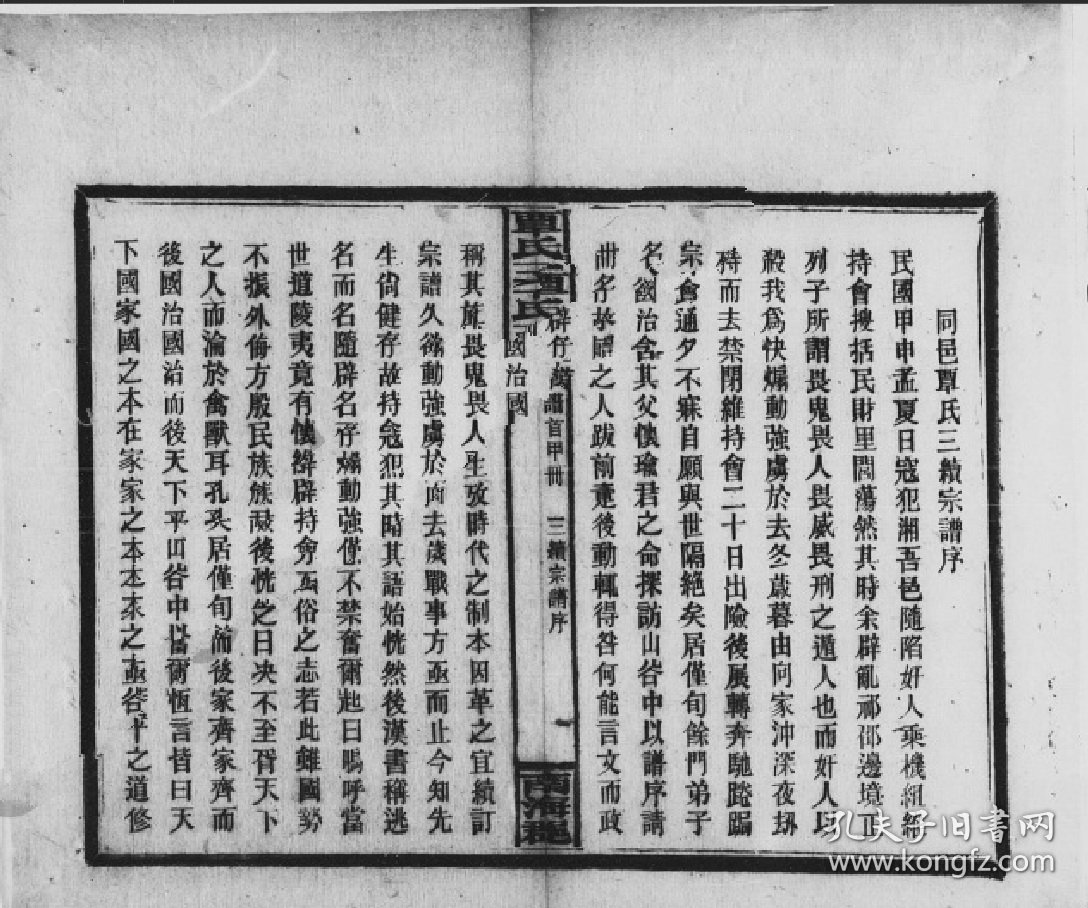 同邑覃氏三續宗譜序
民國甲申孟夏日寇犯湘吾邑隨陷奸人乘機組織維
持會搜括民財里閭蕩然其時余辟亂祁邵邊境正
列子所謂畏鬼畏人畏威畏刑之遁人也而奸人以
殺我爲快煽動強虜於去冬歲暮由向家沖深夜
而去禁閉維持會二十日出險後展轉奔馳
宗會通夕不寐自願與世隔絶矣居僅旬餘門弟子
名國治含其父懷瑜君之命探訪山谷中以譜序請
之人跋前疐後動輒得咎何能言文而政
覃氏
譜首甲冊
三續宗譜序
國治國
南海
稱其旌畏鬼畏人生攷時代之制本因革之宜續訂
宗譜久欲動強虜於向去歲戰事方亟而止今知先
生尙健存故持寇犯其時其語始恍然後漢書稱逃
名而名隨辟名存煽動強僅不禁奮爾起曰嗚呼當
世道陵夷竟有懷辟持俗之志若此雖國勢
不振外侮方殷民族族後恍之日决不至胥天下
之人而淪於禽獸耳孔居僅旬後家齊家齊而
後國治國治而後天下平山谷中爾恆言皆曰天
下國家國之本在家家之本之亟谷平之道修
孔夫子旧書网
www.kongfz.com